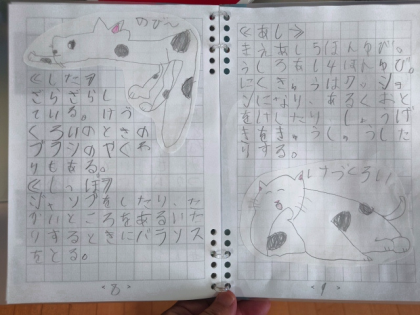 のび～
《した》
ざらざらし
ている。けづ
くろいのときの
ブラシのやくわ
りもある。
《しっぽ》
ジャンプをしたり、た
かいところをあるいた
りするときにバランス
をとる。
<8>
《あし》
まえあし5ほんゆび。
うしろあし4ほんゆび。
にくきゅうはク
ンになり、あるくおと
をけしたり、しょうげ
きをきゅうしゅうした
りする。
けづくろい
<9>